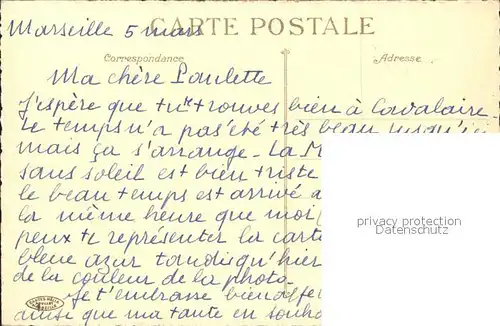 CARTE POSTALE
Marseille 5 mars
Correspondance
Adresse
Ma chère Paulette
J'espère que tu te trouves bien à Cavalaire
Le temps n'a pas été très beau jusqu'ici
mais ça s'arrange - La M
sans soleil est bien triste
le beau temps est arrivé a
la même heure que moi
peux te représenter la carte
bleue azur tandis qu'hier
de la couleur de la photo.
Je t'embrasse bien affe
ainsi que ma tante en souha
privacy protection
Datenschutz